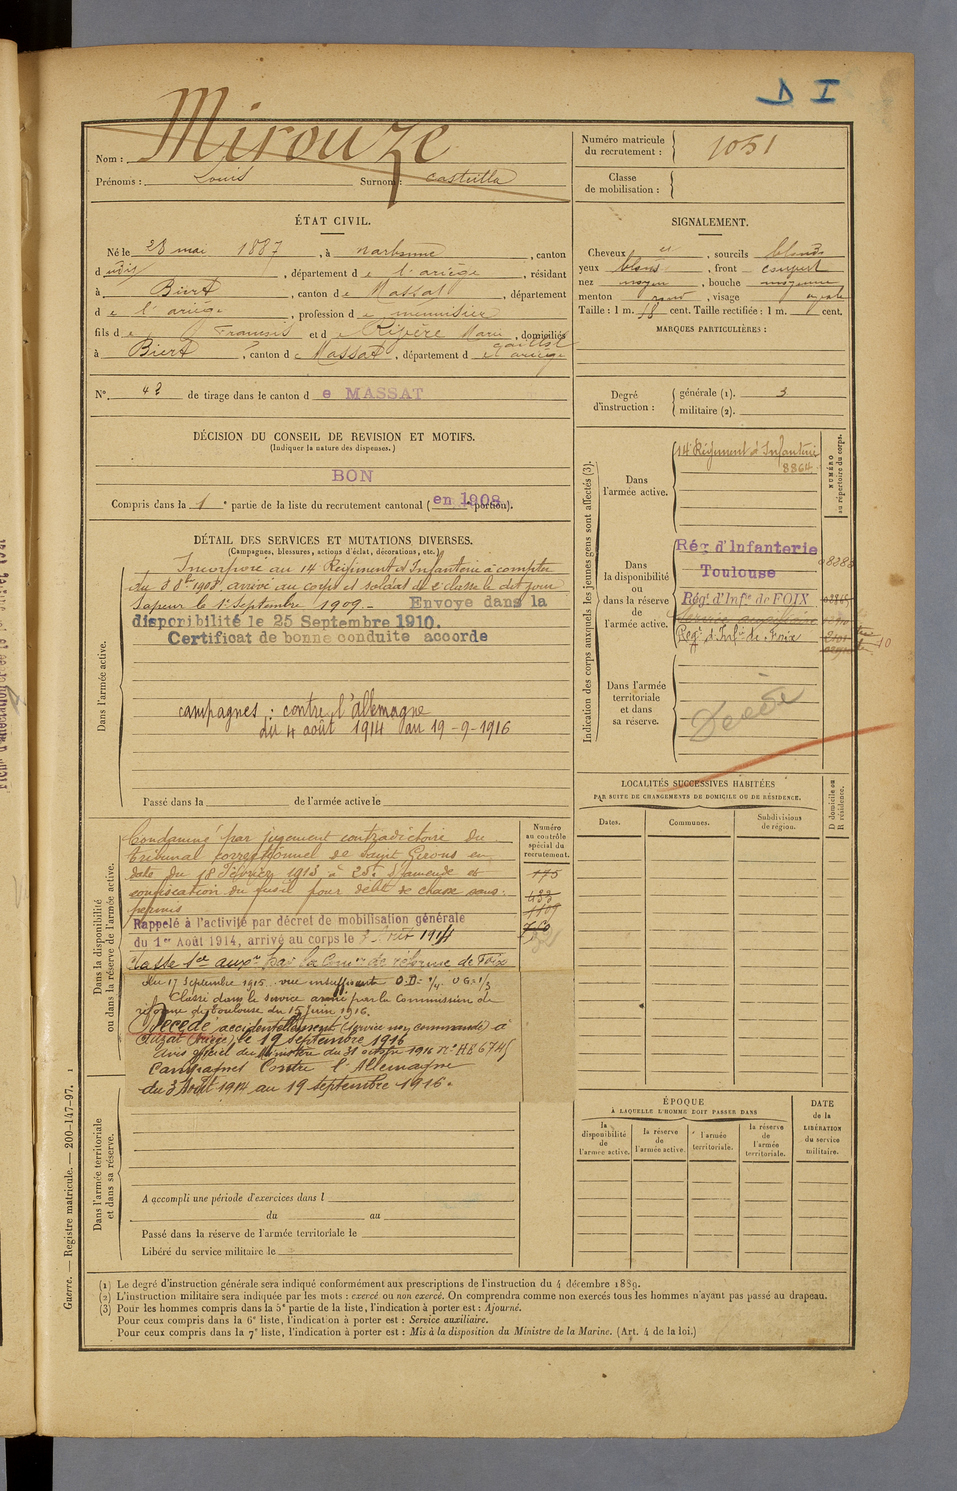 D I
Nom : Mirouze
Prénoms : Louis Surnom : Castella
Numéro matricule du recrutement : 1051
Classe de mobilisation :
ÉTAT CIVIL.
Né le 28 mai 1887, à Narbonne, canton
d udit, département de l'ariège, résidant
à Biert, canton de Massat, département
de l'ariège, profession de menuisier
fils de François et de Ribère Marie, domiciliés
à Biert, canton de Massat, département de ariège
N° 42 de tirage dans le canton de MASSAT
SIGNALEMENT.
Cheveux et, sourcils blonds
yeux bleus, front
nez moyen, bouche moyenne
menton rond, visage ovale
Taille : 1 m. 58 cent. Taille rectifiée : 1 m. cent.
MARQUES PARTICULIÈRES :
Degré d'instruction : générale (1). 3
militaire (2).
DÉCISION DU CONSEIL DE REVISION ET MOTIFS.
(Indiquer la nature des dispenses.)
BON
Compris dans la 1e partie de la liste du recrutement cantonal ( en 1908 portion).
DÉTAIL DES SERVICES ET MUTATIONS DIVERSES.
(Campagnes, blessures, actions d'éclat, décorations, etc.)
Dans l'armée active.
Incorporé au 14 Régiment d'Infanterie à compter
du 8 8bre 1908, arrivé au corps et soldat de 2e classe le dit jour
Sapeur le 1er Septembre 1909.- Envoye dans la
disponibilité le 25 Septembre 1910.
Certificat de bonne conduite accorde
campagnes : contre l'allemagne
du 4 août 1914 au 19-9-1916
Passé dans la de l'armée active le
Indication des corps auxquels les jeunes gens sont affectés (3).
NUMÉRO au répertoire du corps.
Dans l'armée active.
14e Régiment d'Infanterie
8864
Dans la disponibilité ou dans la réserve de l'armée active.
Rég d'Infanterie
Toulouse
Rég. d'Infie de FOIX
Service auxiliaire
Regt d'Infie de Foix
Dans l'armée territoriale et dans sa réserve.
Décédé
LOCALITÉS SUCCESSIVES HABITÉES
PAR SUITE DE CHANGEMENTS DE DOMICILE OU DE RÉSIDENCE.
D domicile ou R résidence.
Dates. Communes. Subdivisions de région.
Dans la disponibilité ou dans la réserve de l'armée active.
Numéro au contrôle spécial du recrutement.
Condamné par jugement contradictoire du
tribunal correctionnel de Saint Girons en
date du 18 Février 1913 à 25f d'amende et
confiscation du fusil pour délit de chasse sans
permis
Rappelé à l'activité par décret de mobilisation générale
du 1er Août 1914, arrivé au corps le 3 Août 1914
Classé ser auxre par la Comon de réforme de Foix
du 17 Septembre 1915. vue insuffisante O.D= 1/4. OG=1/3
Classé dans le service armé par la Commission de
réforme de Toulouse du 15 Juin 1916.
Décédé accidentellement (service non commandé) à
le 19 septembre 1916
avis officiel du Ministère du 31 octobre 1916 N° H86745
Campagnes Contre l'Allemagne
du 3 Août 1914 au 19 septembre 1916.
Dans l'armée territoriale et dans sa réserve.
A accompli une période d'exercices dans l
du au
Passé dans la réserve de l'armée territoriale le
Libéré du service militaire le
ÉPOQUE
À LAQUELLE L'HOMME DOIT PASSER DANS
la disponibilité de l'armée active.
la réserve de l'armée active.
l'armée territoriale.
la réserve de l'armée territoriale.
DATE de la LIBÉRATION du service militaire.
Guerre. — Registre matricule. — 200-147-97. 1
(1) Le degré d'instruction générale sera indiqué conformément aux prescriptions de l'instruction du 4 décembre 1889.
(2) L'instruction militaire sera indiquée par les mots : exercé ou non exercé. On comprendra comme non exercés tous les hommes n'ayant pas passé au drapeau.
(3) Pour les hommes compris dans la 5e partie de la liste, l'indication à porter est : Ajourné.
Pour ceux compris dans la 6e liste, l'indication à porter est : Service auxiliaire.
Pour ceux compris dans la 7e liste, l'indication à porter est : Mis à la disposition du Ministre de la Marine. (Art. 4 de la loi.)